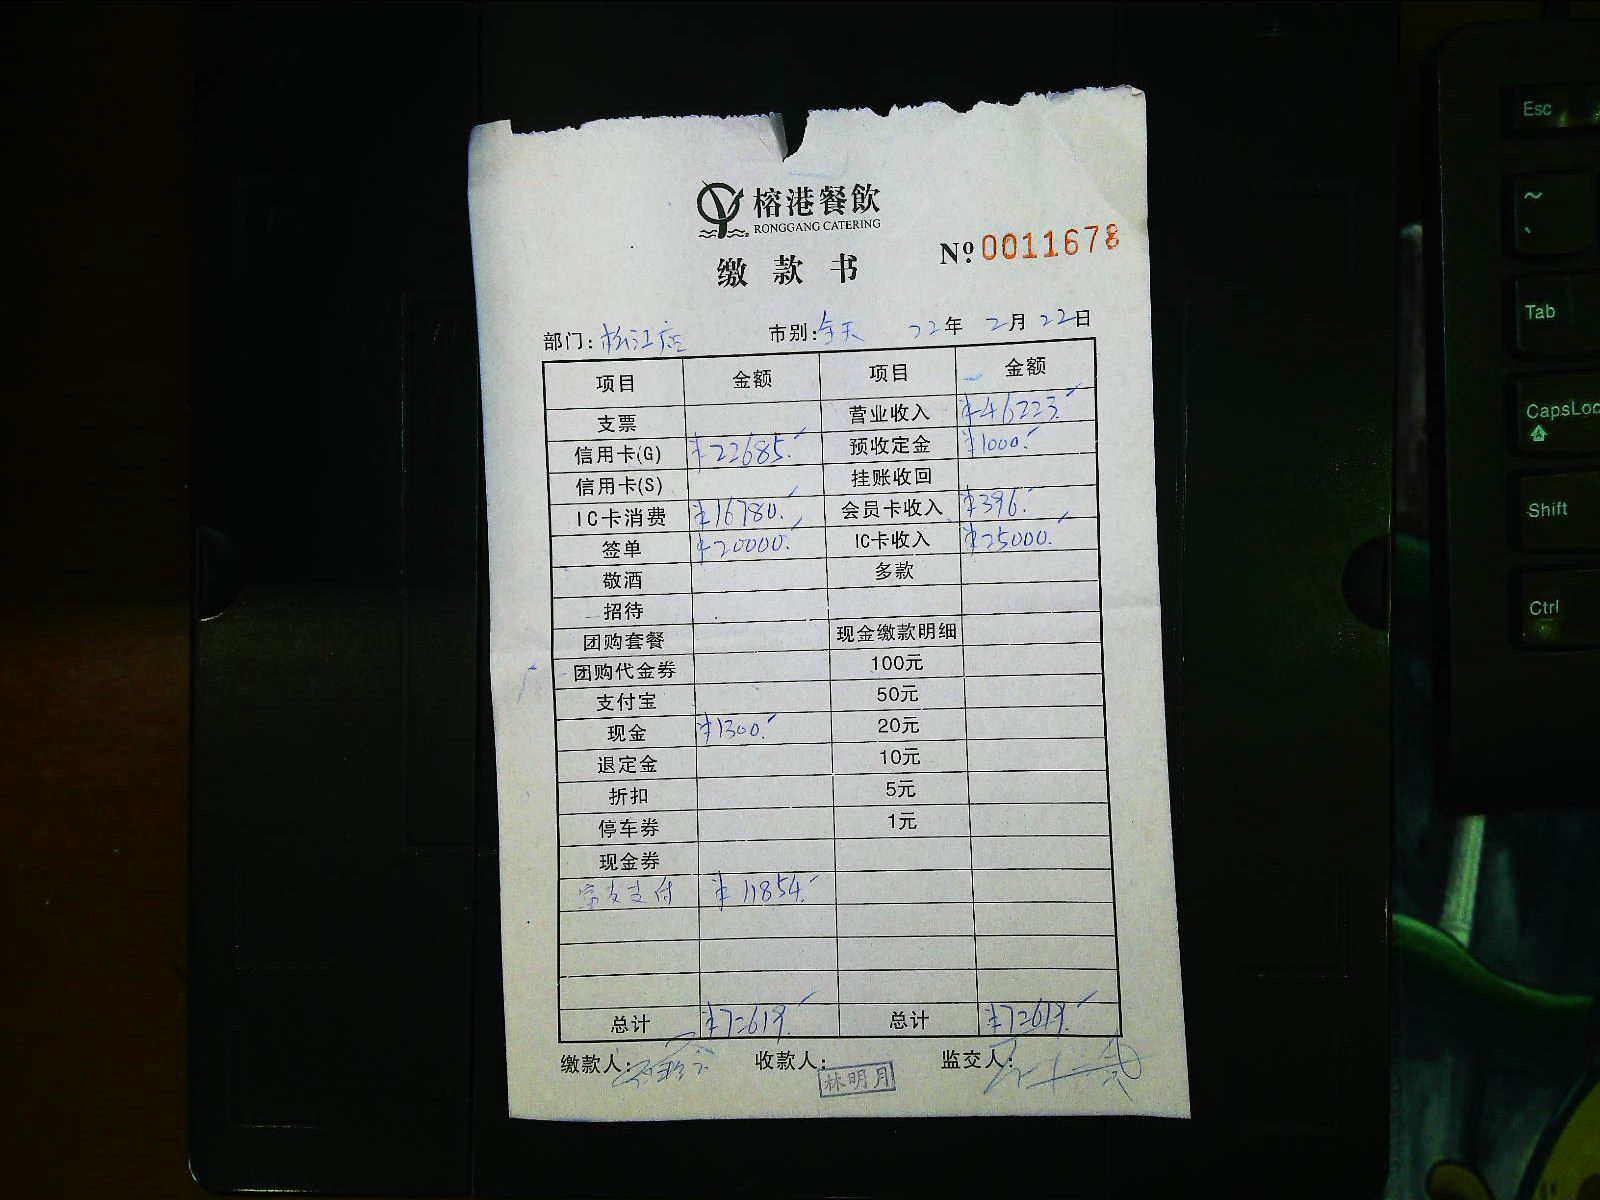 榕港餐飲
RONGGANG CATERING
缴款书
No. 0011678
部门: 松江店 市别: 全天 22年 2月 22日
项目 金额 项目 金额
支票 营业收入 ¥46223.
信用卡(G) ¥22685. 预收定金 ¥1000.
信用卡(S) 挂账收回
IC卡消费 ¥16780. 会员卡收入 ¥396.
签单 ¥20000. IC卡收入 ¥25000.
敬酒 多款
招待
团购套餐 现金缴款明细
团购代金券 100元
支付宝 50元
现金 ¥1300. 20元
退定金 10元
折扣 5元
停车券 1元
现金券
支付 ¥11854.
总计 ¥72619. 总计 ¥72619.
缴款人: 收款人: 林明月 监交人:
Esc
~
Tab
CapsLoc
Shift
Ctrl